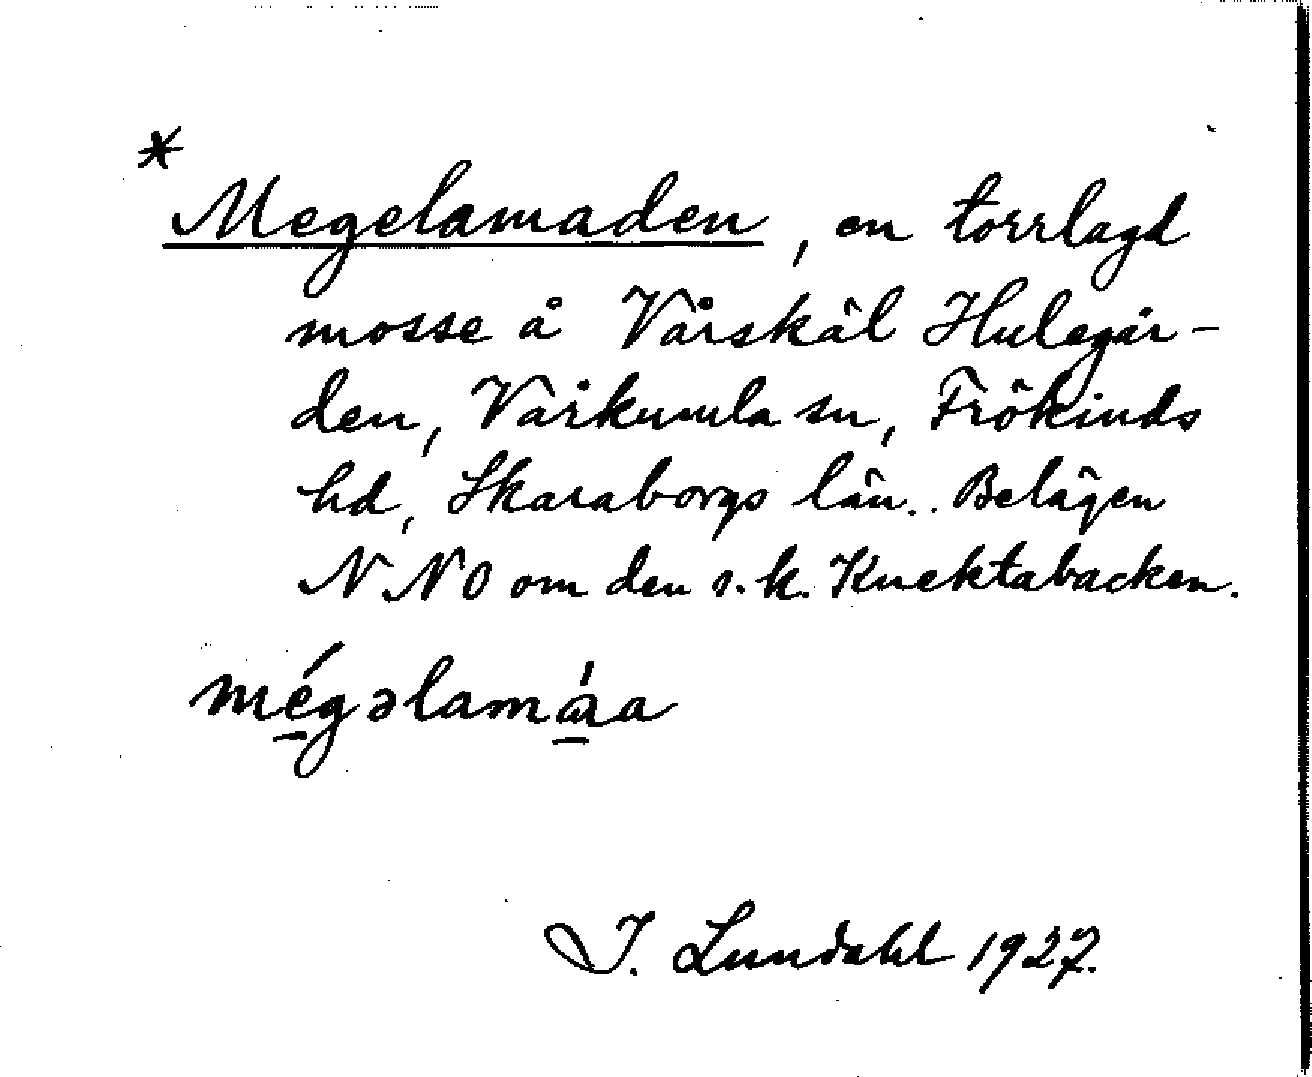 *
Megelamaden, en torrlagd
mosse å Vårskäl Hulegår-
den, Vårkumla sn, Frökinds
hd, Skaraborgs län. Belägen
N.N.O om den s.k. Knektabacken.
mégəlamáa
I. Lundahl 1927.